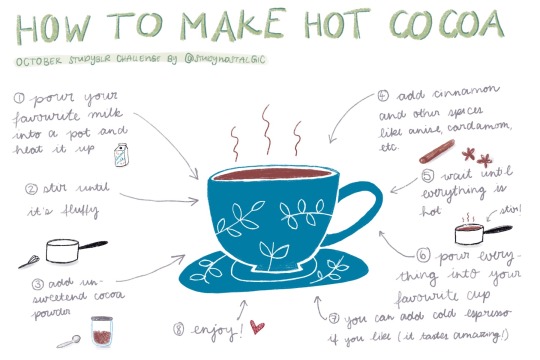 HOW TO MAKE HOT COCOA
OCTOBER STUDYBLR CHALLENGE BY @STUDYNOSTALGIC
① pour your
favourite milk
into a pot and
heat it up
② stir until
it's fluffy
③ add un-
sweetend cocoa
powder
④ add cinnamon
and other spices
like anise, cardamom,
etc.
⑤ wait until
everything is
hot
stir!
⑥ pour every-
thing into your
favourite cup
⑦ you can add cold espresso
if you like (it tastes amazing!)
⑧ enjoy!